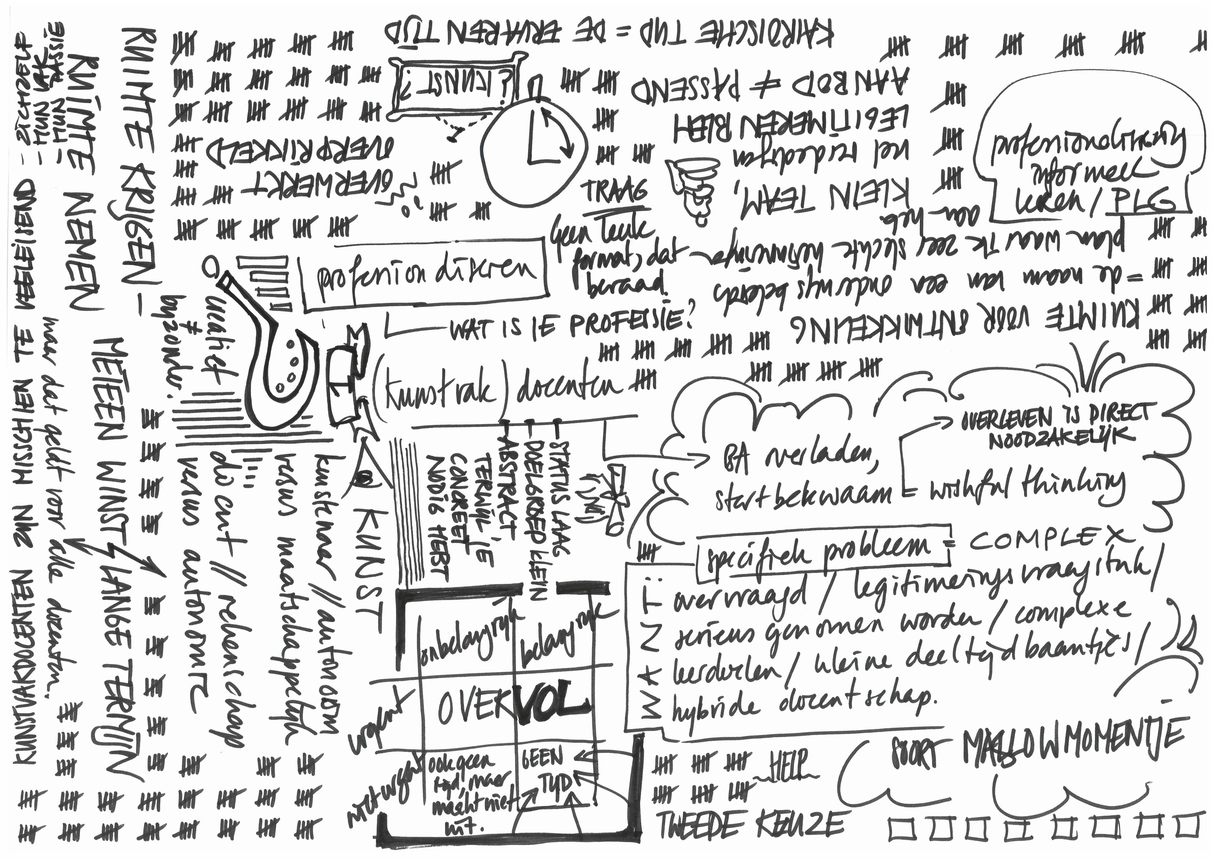 KAIROÏSCHE TIJD = DE ERVAREN TIJD
¿KUNST?
AANBOD ≠ PASSEND
LEGITIMEREN BLEH
vel redeneren
KLEIN TEAM,
OVERPRIKKELD
OVERWERKT
TRAAG
Geen leuk
format, dat
beraad.
professionalisering
informeel
leren / PLG
RUIMTE VOOR ONTWIKKELING
= de naam van een onderwijs beleids
plan waar ik zeer slechte herinneringen
aan heb
professionaliseren
WAT IS JE PROFESSIE?
(kunstvak) docenten
STATUS LAAG
DOELGROEP KLEIN
ABSTRACT
TERWIJL JE
CONCREET
NODIG HEBT
BA verladen,
startbekwaam = wishful thinking
OVERLEVEN IS DIRECT
NOODZAKELIJK
specifiek probleem = COMPLEX
WANT:
overvraagd / legitimeringsvraagstuk /
serieus genomen worden / complexe
leerdoelen / kleine deeltijdbaantjes /
hybride docentschap.
SOORT MASLOWMOMENTJE
HELP
TWEEDE KEUZE
onbelangrijk
belangrijk
urgent
OVERVOL
niet urgent
ook geen
tijd, maar
maakt niet
uit.
GEEN
TIJD
KUNST
kunstenaar // autonoom
versus maatschappelijk
docent // rekenschap
versus autonomie
creatief
≠
bijzonder.
RUIMTE KRIJGEN –
RUIMTE NEMEN
METEEN WINST / LANGE TERMIJN
KUNSTVAKDOCENTEN ZIJN MISSCHIEN TE VEELEISEND
- ZICHZELF
- HUN VAK
- HUN PASSIE
maar dat geldt voor alle docenten.